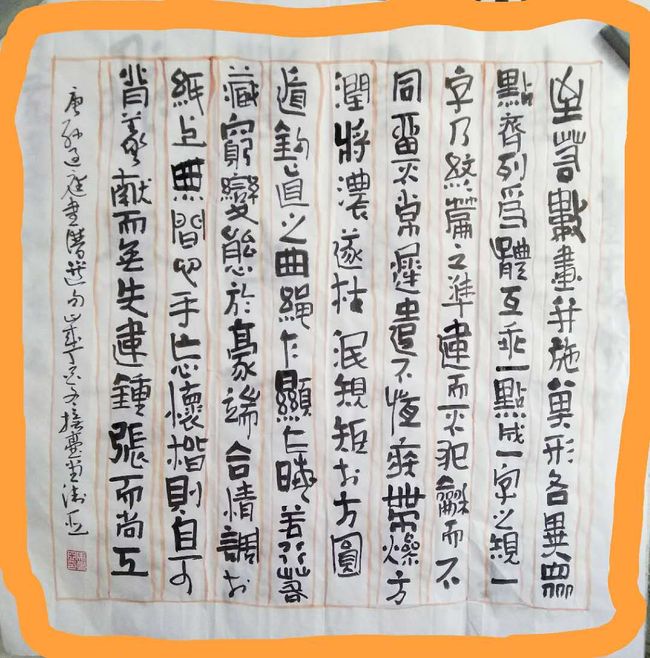 至若數畫并施其形各異眾
點齊列爲體互乖一點成一字之規一
字乃終篇之準違而不犯龢而不
同留不常遲遣不恆疾帶燥方
潤將濃遂枯泯規矩於方圓
遁鈎直之曲繩乍顯乍晦若行若
藏窮變態於豪端合情調於
紙上無間心手忘懷楷則自可
背羲獻而無失違鍾張而尚工
唐孫過庭書譜選句